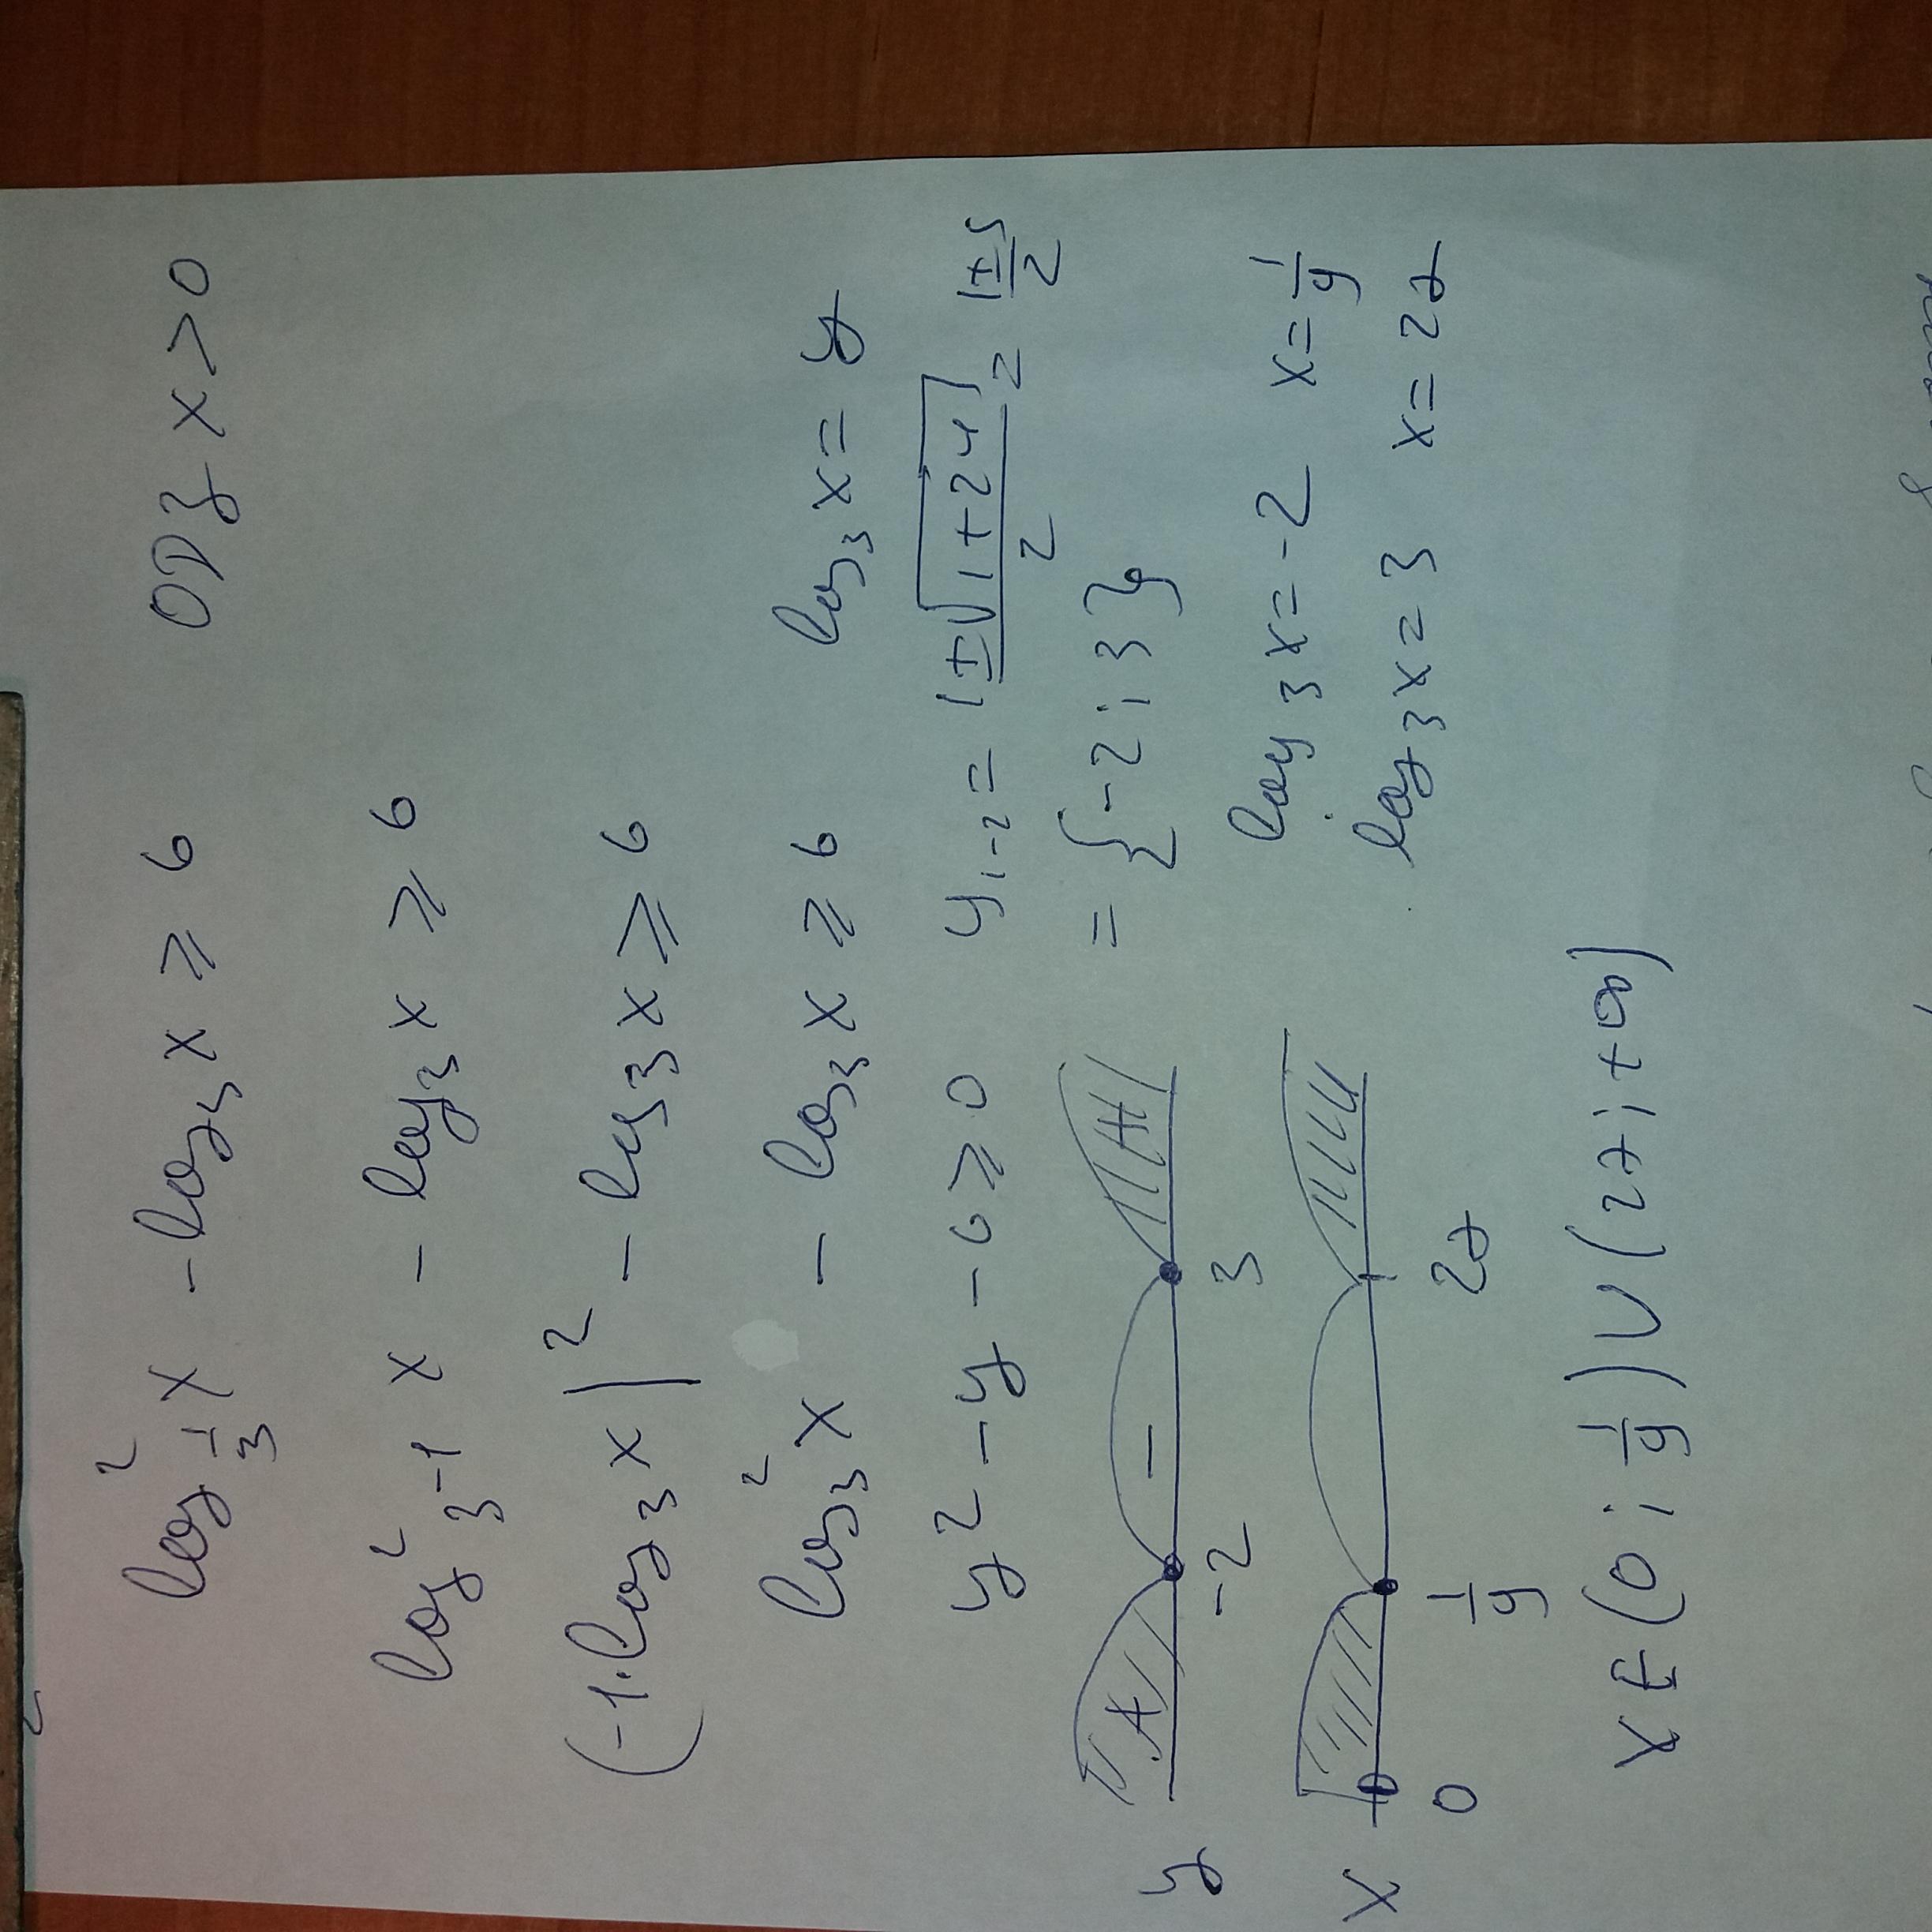 log²_{1/3} x - log₃ x ≥ 6 ODZ x > 0
log²_{3⁻¹} x - log₃ x ≥ 6
(-1·log₃ x)² - log₃ x ≥ 6
log₃² x - log₃ x ≥ 6 log₃ x = y
y² - y - 6 ≥ 0 y₁₋₂ = (1 ± √(1+24))/2 = (1±5)/2
= {-2; 3}
y + - +
-2 3
log₃ x = -2 x = 1/9
log₃ x = 3 x = 27
x
0 1/9 27
x ∈ (0; 1/9) ∪ (27; +∞)